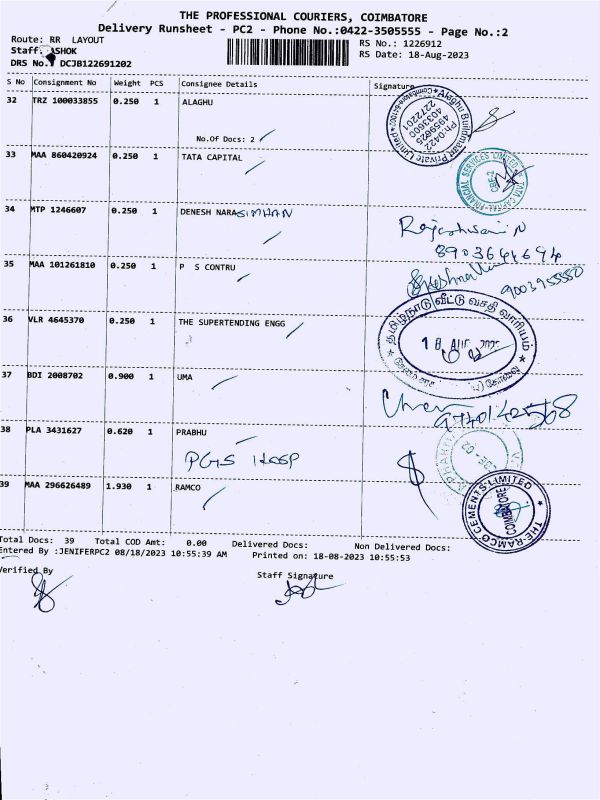 THE PROFESSIONAL COURIERS, COIMBATORE
Delivery Runsheet - PC2 - Phone No.:0422-3505555 - Page No.:2
Route: RR LAYOUT
RS No.: 1226912
Staff: ASHOK
RS Date: 18-Aug-2023
DRS No.: DCJB122691202
S No Consignment No Weight PCS Consignee Details Signature
32 TRZ 100033855 0.250 1 ALAGHU
No.Of Docs: 2
Alaghu Buildmaan Private Limited
Ph:0422
4959925
4033600
2272201
33 MAA 860420924 0.250 1 TATA CAPITAL
TATA CAPITAL FINANCIAL SERVICES LIMITED
34 MTP 1246607 0.250 1 DENESH NARASIMHAN
Rajeshwari N
8903644694
35 MAA 101261810 0.250 1 P S CONTRU
9003955550
36 VLR 4645370 0.250 1 THE SUPERTENDING ENGG
தமிழ்நாடு வீட்டு வசதி வாரியம்
18 AUG
37 BDI 2008702 0.900 1 UMA
9740142568
38 PLA 3431627 0.620 1 PRABHU
PGS HOSP
39 MAA 296626489 1.930 1 RAMCO
THE RAMCO CEMENTS LIMITED
COIMBATORE
Total Docs: 39 Total COD Amt: 0.00 Delivered Docs: Non Delivered Docs:
Entered By :JENIFERPC2 08/18/2023 10:55:39 AM Printed on: 18-08-2023 10:55:53
Verified By Staff Signature